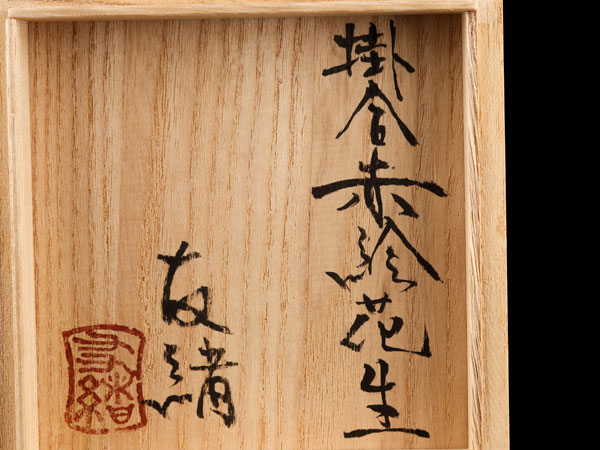 掛合赤絵花生
友緒
友緒